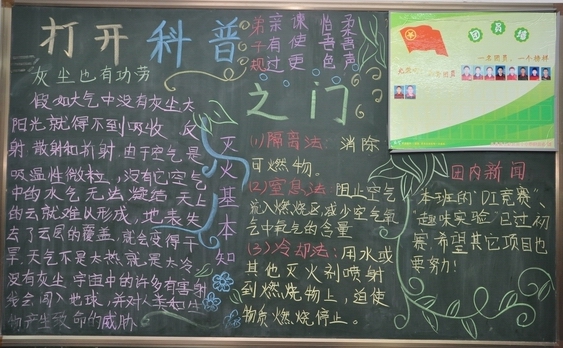 打开科普
之门
弟子规
亲有过
谏使更
怡吾色
柔吾声
灰尘也有功劳
假如大气中没有灰尘太
阳光就得不到吸收 反
射 散射和折射.由于空气是
吸湿性微粒,没有它空气
中的水气无法凝结.天上
的云就难以形成,地表失
去了云层的覆盖,就会变得干
旱.天气不是太热就是太冷.
没有灰尘 宇宙中的许多有害射
线会闯入地球,并对人类和生
物产生致命的威胁
灭火基本知
(1)隔离法: 消除
可燃物。
(2)窒息法:阻止空气
流入燃烧区,减少空气氧
气中氧气的含量
(3)冷却法:用水或
其他灭火剂喷射
到燃烧物上,迫使
物质燃烧停止。
团员墙
一名团员,一个榜样
团内新闻
本班的"DI竞赛"、
"趣味实验"已过初
赛.希望其它项目也
要努力!